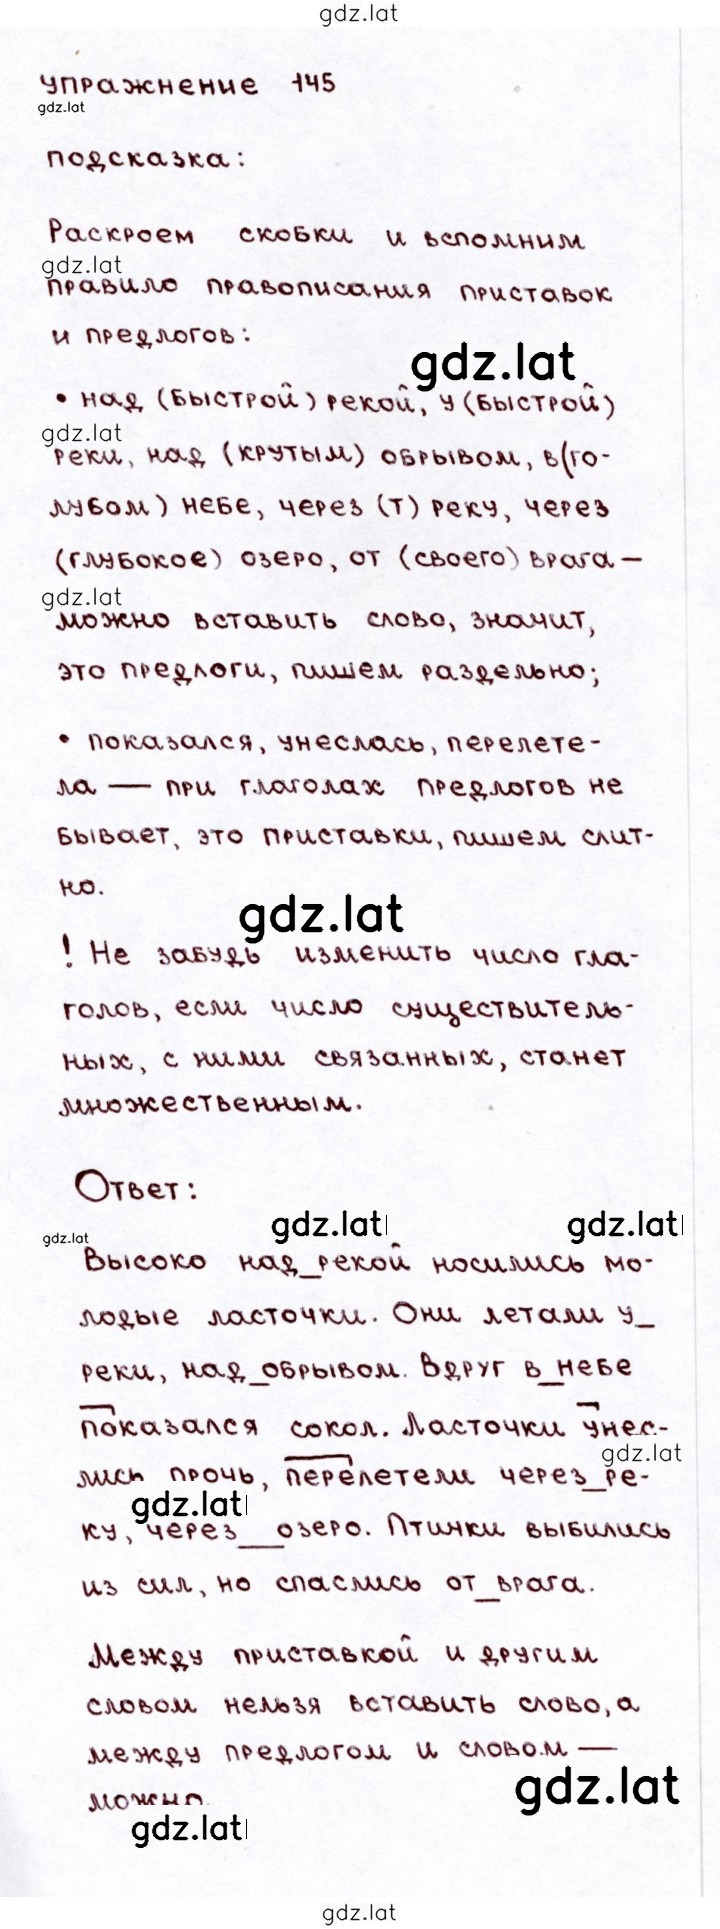 gdz.lat
упражнение 145
gdz.lat
подсказка:
Раскроем скобки и вспомним
gdz.lat
правило правописания приставок
и предлогов:
gdz.lat
• над (быстрой) рекой, у (быстрой)
gdz.lat
реки, над (крутым) обрывом, в(го-
лубом) небе, через (т) реку, через
(глубокое) озеро, от (своего) врага —
gdz.lat
можно вставить слово, значит,
это предлоги, пишем раздельно;
• показался, унеслась, перелете-
ла — при глаголах предлогов не
бывает, это приставки, пишем слит-
но.
gdz.lat
! Не забудь изменить число гла-
голов, если число существитель-
ных, с ними связанных, станет
множественным.
Ответ:
gdz.lat gdz.lat
gdz.lat
Высоко над_рекой носились мо-
лодые ласточки. Они летали у_
реки, над_обрывом. Вдруг в_небе
показался сокол. Ласточки унес-
gdz.lat
лись прочь, перелетели через_ре-
gdz.lat
ку, через_озеро. Птички выбились
из сил, но спаслись от_врага.
Между приставкой и другим
словом нельзя вставить слово, а
между предлогом и словом —
gdz.lat
можно.
gdz.lat
gdz.lat